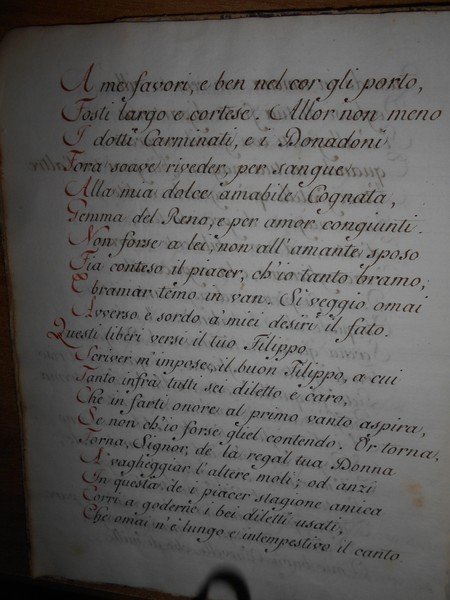 A me favori, e ben nel cor gli porto,
Fosti largo e cortese. Allor non meno
I dotti Carminati, e i Donadoni
Fora soave riveder, per sangue
Alla mia dolce amabile Cognata,
Gemma del Reno, e per amor congiunti.
Non forse a lei, non all'amante sposo
Fia conteso il piacer, ch'io tanto bramo,
E bramar temo in van. Si veggio omai
Avverso e sordo a' miei desiri il fato.
Questi liberi versi il tuo Filippo
Scriver m'impose, il buon Filippo, a cui
Tanto infra tutti sei diletto e caro,
Che in farti onore al primo vanto aspira,
Se non ch'io forse gliel contendo. Or torna,
Torna, Signor, de la regal tua Donna
A vagheggiar l'altere moli; od anzi
In questa de i piacer stagione amica
Corri a goderne i bei diletti usati,
Che omai n'è lungo e intempestivo il canto.